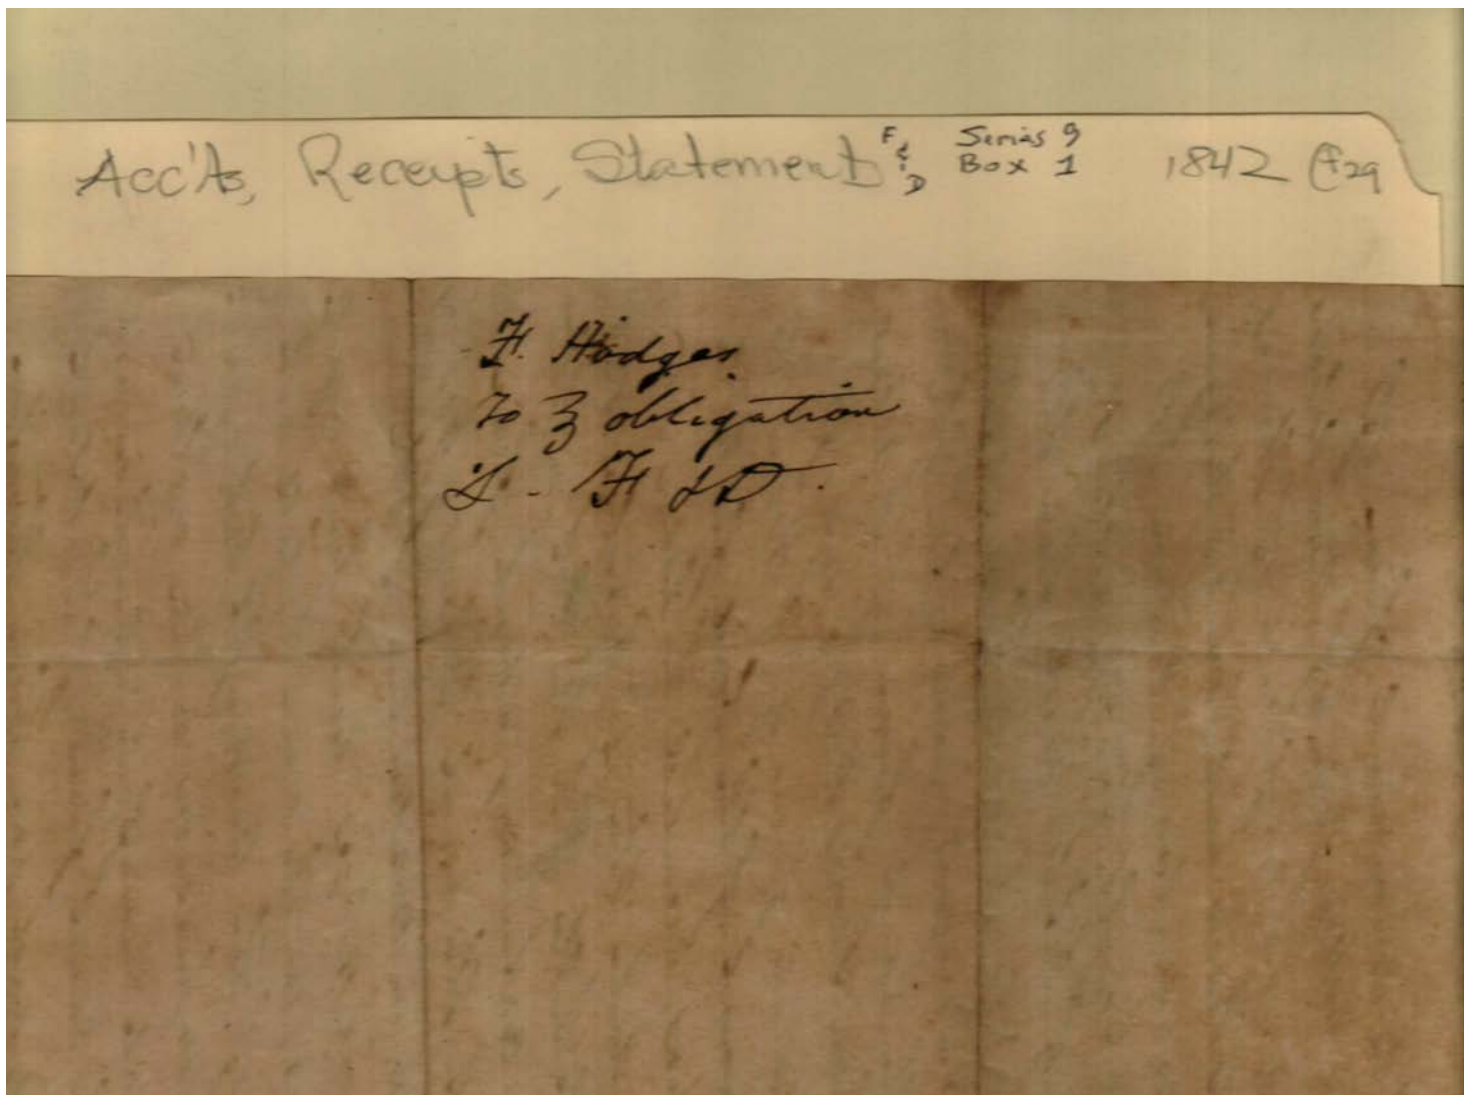 Acc'ts, Receipts, Statements F & D Series 9 Box 1 1842 f29
F. Hodges
To 3 obligation
F & D.